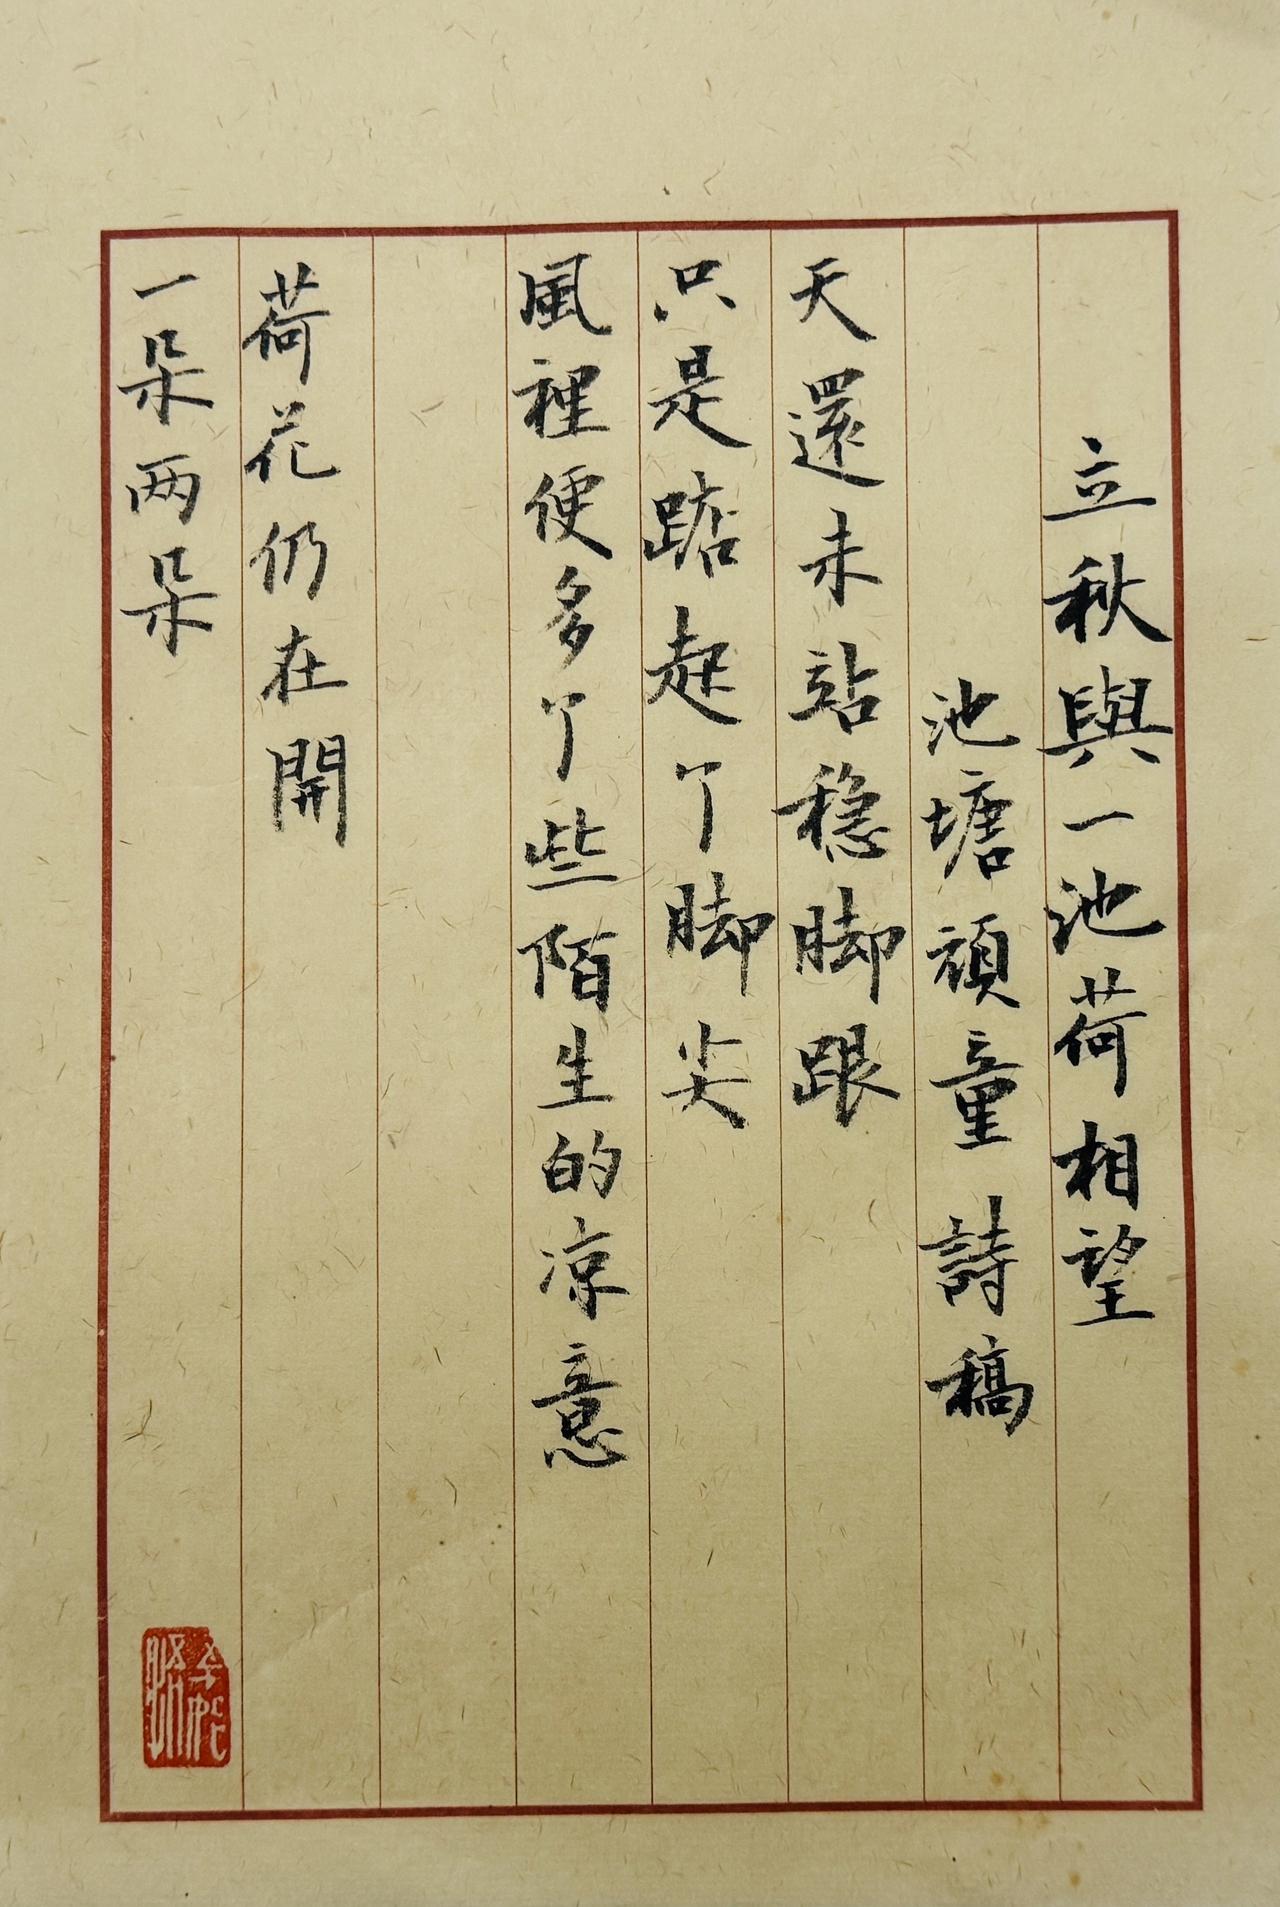 立秋與一池荷相望
池塘頑童詩稿
天還未站稳脚跟
只是踮起了脚尖
風裡便多了些陌生的凉意
荷花仍在開
一朵两朵